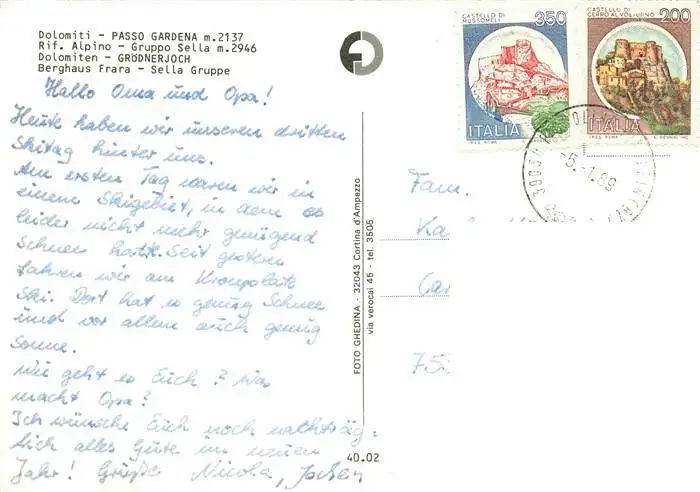 Dolomiti - PASSO GARDENA m.2137
Rif. Alpino - Gruppo Sella m.2946
Dolomiten - GRÖDNERJOCH
Berghaus Frara - Sella Gruppe
Hallo Oma und Opa!
Heute haben wir unseren dritten
Skitag hinter uns.
Am ersten Tag waren wir in
einem Skigebiet, in dem es
leider nicht mehr genügend
Schnee hatte. Seit gestern
fahren wir am Kronplatz
Ski. Dort hat es genug Schnee
und vor allem auch genug
Sonne.
Wie geht es Euch? Was
macht Opa?
Ich wünsche Euch noch nachträg-
lich alles Gute im neuen
Jahr! Grüße Nicola, Jochen
40.02
FOTO GHEDINA - 32043 Cortina d'Ampezzo
via verocai 45 - tel. 3505
CASTELLO DI
MUSSOMELI
350
ITALIA
CASTELLO DI
CERRO AL VOLTURNO
200
ITALIA
-5.-1.89
Fam.
Ka